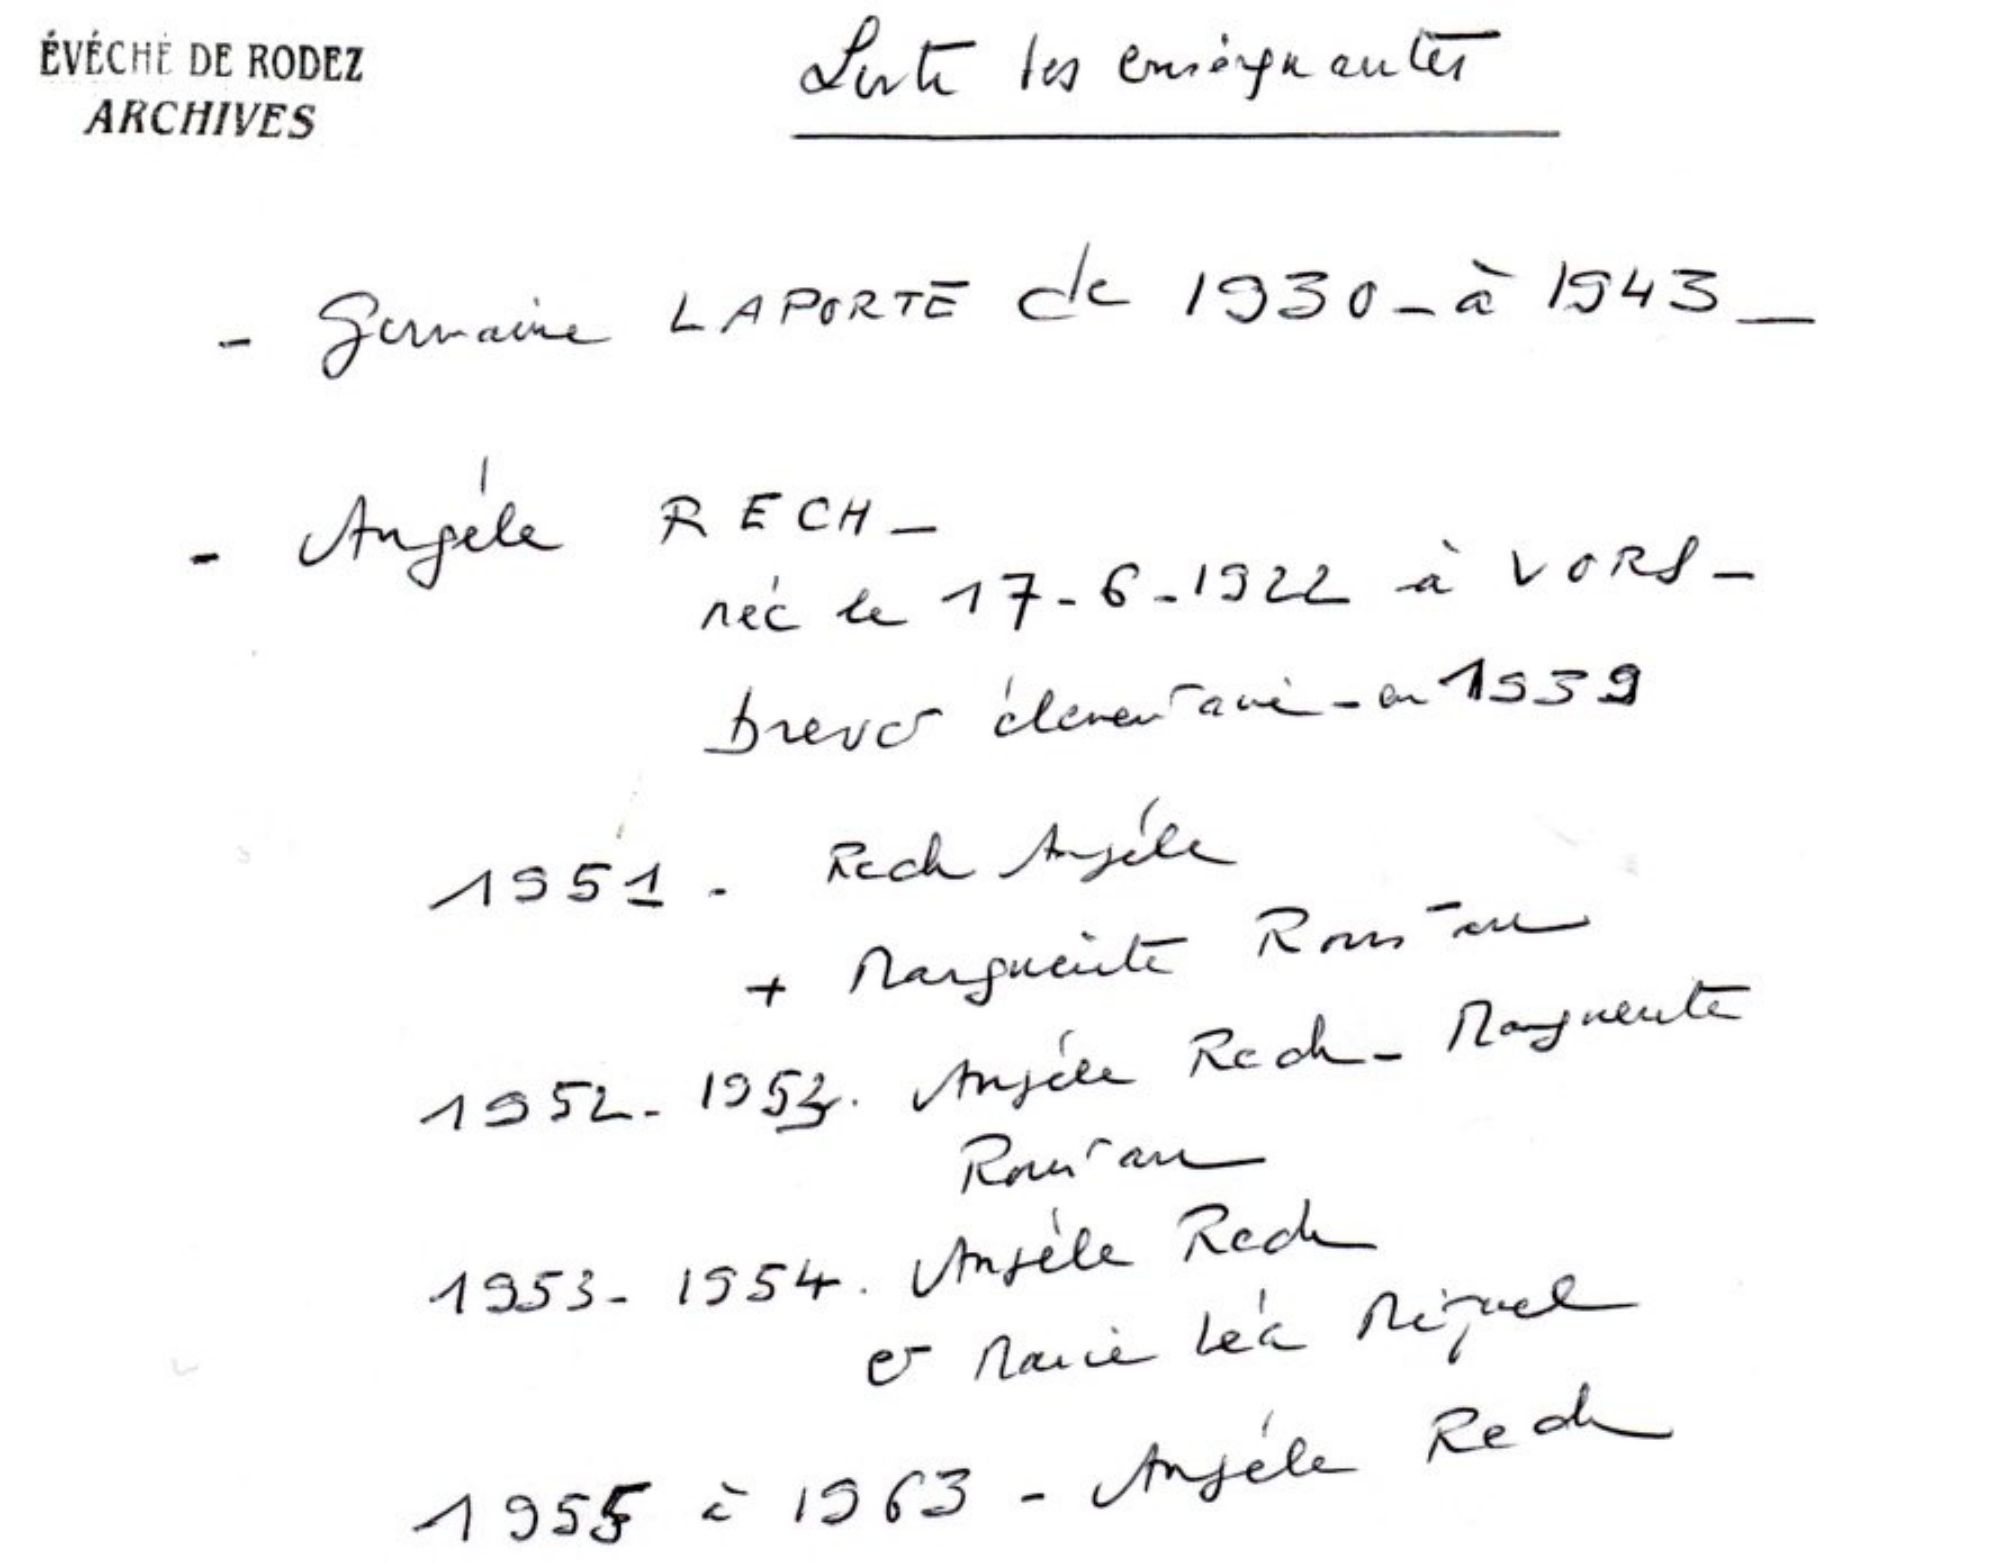 ÉVÉCHÉ DE RODEZ
ARCHIVES
Liste des enseignantes
- Germaine LAPORTE de 1930 - à 1943 -
- Angèle RECH -
née le 17-6-1922 à VORS -
brevet élémentaire - en 1939
1951 - Rech Angèle
+ Marguerite Roustan
1952 - 1953. Angèle Rech - Marguerite
Roustan
1953 - 1954. Angèle Rech
et Marie Léa Miquel
1955 à 1963 - Angèle Rech